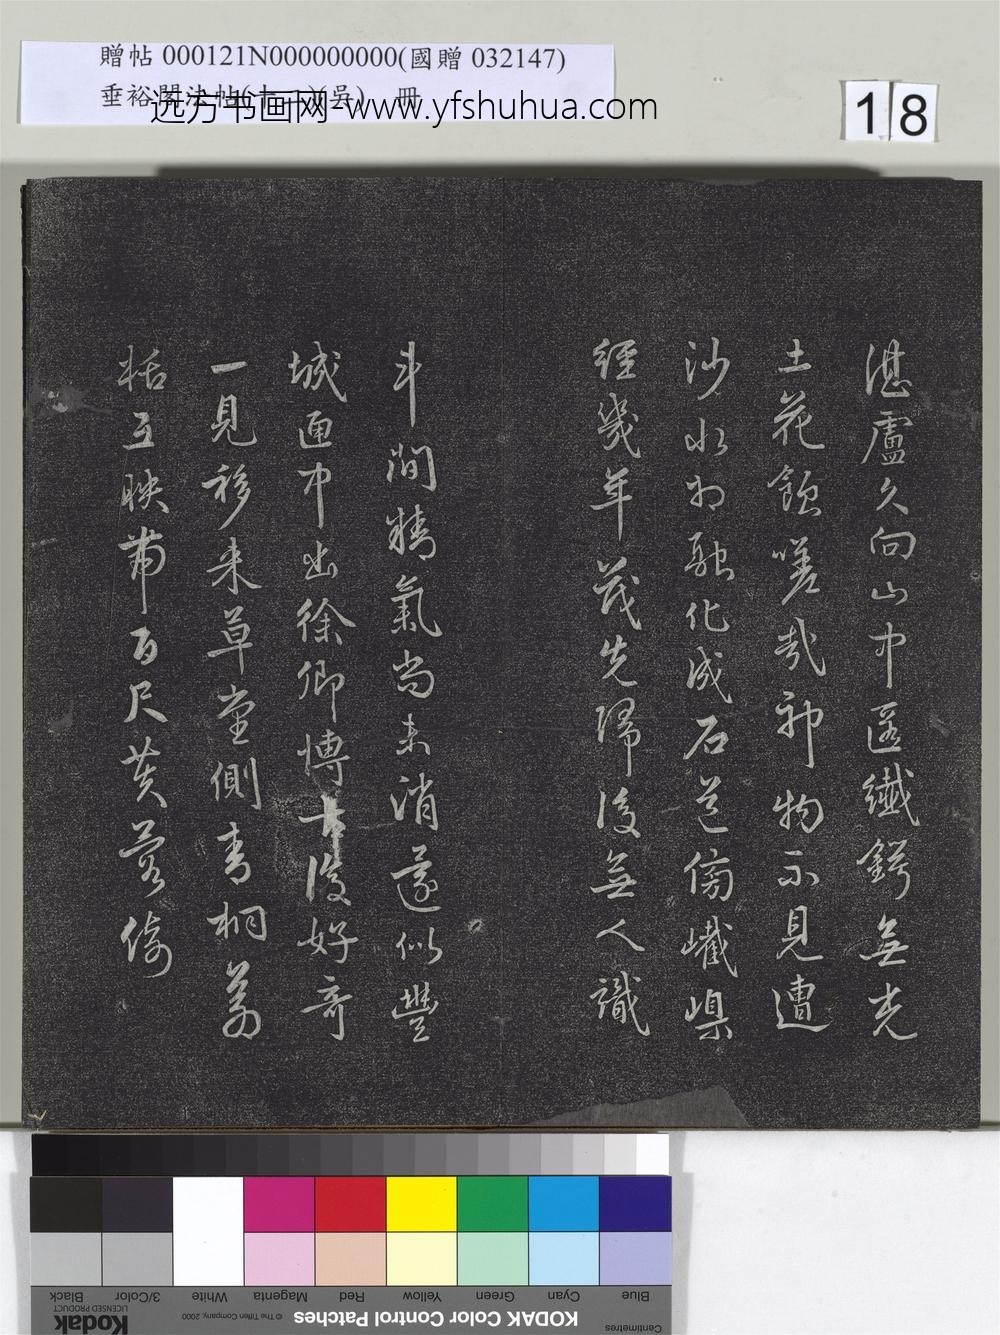 贈帖 000121N000000000(國贈 032147)
垂裕閣法帖(十二)(吳) 冊
远方书画网-www.yfshuhua.com
18
湛盧久向山中匿纖鍔無光
土花飲嗟哉神物不見遭
沙水相融化成石蒼傍巇嵲
經幾年茂先歸後無人識
斗間精氣尚未消邃似豐
城匣中出徐卿博古復好奇
一見移來草堂側青桐蒼
栝互映帶百尺黃蓉倚
Black 3/Color White Magenta Red Yellow Green Cyan Blue
Kodak LICENSED PRODUCT © The Tiffen Company, 2000 KODAK Color Control Patches Centimetres